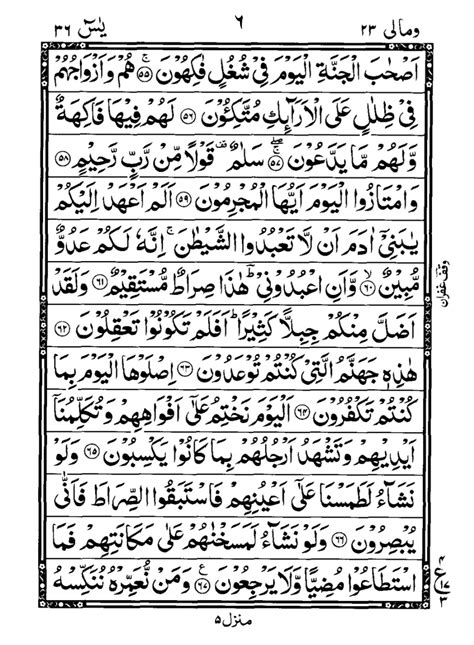 ومالی ۲۳
٦
یٰسٓ ۳۶
اَصْحٰبَ الْجَنَّةِ الْيَوْمَ فِيْ شُغُلٍ فٰكِهُوْنَ ۚ ﴿٥٥﴾ هُمْ وَاَزْوَاجُهُمْ
فِيْ ظِلٰلٍ عَلَى الْاَرَآئِكِ مُتَّكِـُٔوْنَ ﴿٥٦﴾ لَهُمْ فِيْهَا فَاكِهَةٌ
وَّلَهُمْ مَّا يَدَّعُوْنَ ﴿٥٧﴾ سَلٰمٌ قَوْلًا مِّنْ رَّبٍّ رَّحِيْمٍ ﴿٥٨﴾
وَامْتَازُوا الْيَوْمَ اَيُّهَا الْمُجْرِمُوْنَ ﴿٥٩﴾ اَلَمْ اَعْهَدْ اِلَيْكُمْ
يٰبَنِيْٓ اٰدَمَ اَنْ لَّا تَعْبُدُوا الشَّيْطٰنَ ۚ اِنَّهٗ لَكُمْ عَدُوٌّ
مُّبِيْنٌ ﴿٦٠﴾ وَّاَنِ اعْبُدُوْنِيْ ؕ هٰذَا صِرَاطٌ مُّسْتَقِيْمٌ ﴿٦١﴾ وَلَقَدْ
اَضَلَّ مِنْكُمْ جِبِلًّا كَثِيْرًا ؕ اَفَلَمْ تَكُوْنُوْا تَعْقِلُوْنَ ﴿٦٢﴾
هٰذِهٖ جَهَنَّمُ الَّتِيْ كُنْتُمْ تُوْعَدُوْنَ ﴿٦٣﴾ اِصْلَوْهَا الْيَوْمَ بِمَا
كُنْتُمْ تَكْفُرُوْنَ ﴿٦٤﴾ اَلْيَوْمَ نَخْتِمُ عَلٰٓى اَفْوَاهِهِمْ وَتُكَلِّمُنَآ
اَيْدِيْهِمْ وَتَشْهَدُ اَرْجُلُهُمْ بِمَا كَانُوْا يَكْسِبُوْنَ ﴿٦٥﴾ وَلَوْ
نَشَآءُ لَطَمَسْنَا عَلٰٓى اَعْيُنِهِمْ فَاسْتَبَقُوا الصِّرَاطَ فَاَنّٰى
يُبْصِرُوْنَ ﴿٦٦﴾ وَلَوْ نَشَآءُ لَمَسَخْنٰهُمْ عَلٰى مَكَانَتِهِمْ فَمَا
اسْتَطَاعُوْا مُضِيًّا وَّلَا يَرْجِعُوْنَ ﴿٦٧﴾ وَمَنْ نُّعَمِّرْهُ نُنَكِّسْهُ
وقف غفران
۴
ع
۱۷
۳
منزل ۵